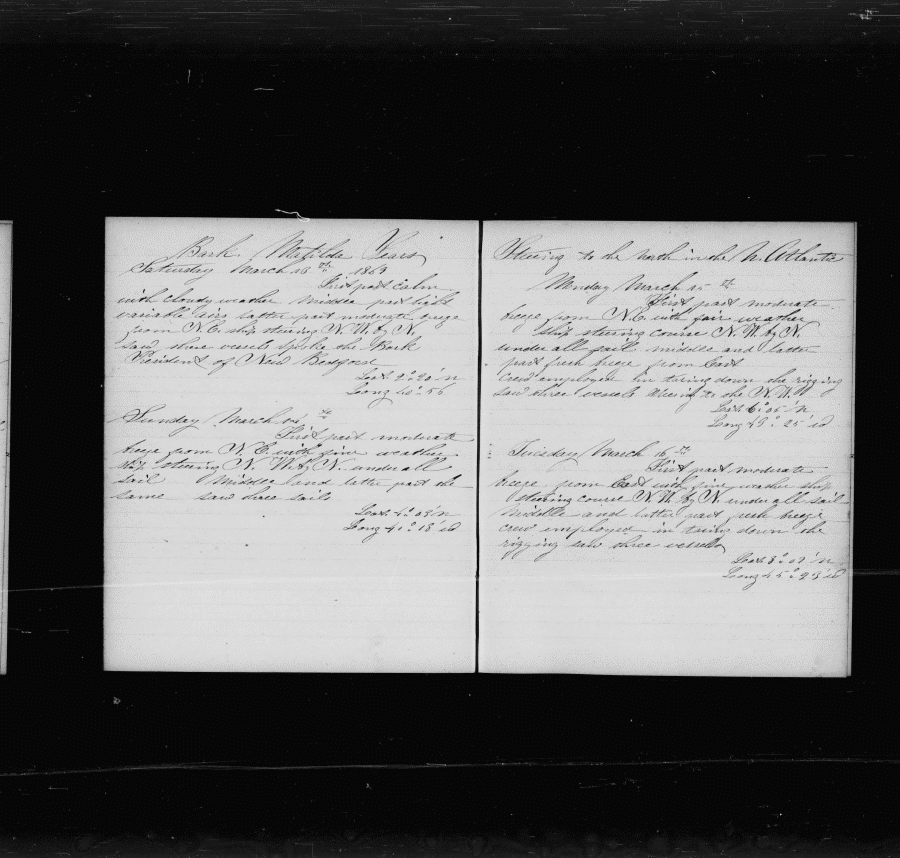 Bark Matilda Sears
Saturday March 13th 1869
First part calm
with cloudy weather Middle part light
variable airs latter part moderate breeze
from N.E. ship steering N. W. by N.
saw three vessels spoke the Bark
President of New Bedford
Lat 2° 20' N
Long 40° 56
Sunday March 14th
First part moderate
breeze from N. E. with fine weather
ship steering N. W. by N. under all
sail Middle and latter part the
same saw three sails
Lat 4° 03' N
Long 41° 18' W
Steering to the North in the N. Atlantic
Monday March 15th
First part moderate
breeze from N.E. with fair weather
ship steering course N. W. by N
under all sail middle and latter
part fresh breeze from East
crew employed in taring down the rigging
saw three vessels steering to the N.W
Lat 6° 05' N
Long 43° 25' W
Tuesday March 16th
First part moderate
breeze from East with fine weather ship
steering course N. W. by N under all sail
Middle and latter part fresh breeze
crew employed in taring down the
rigging saw three vessels
Lat 8° 07' N
Long 45° 23' W